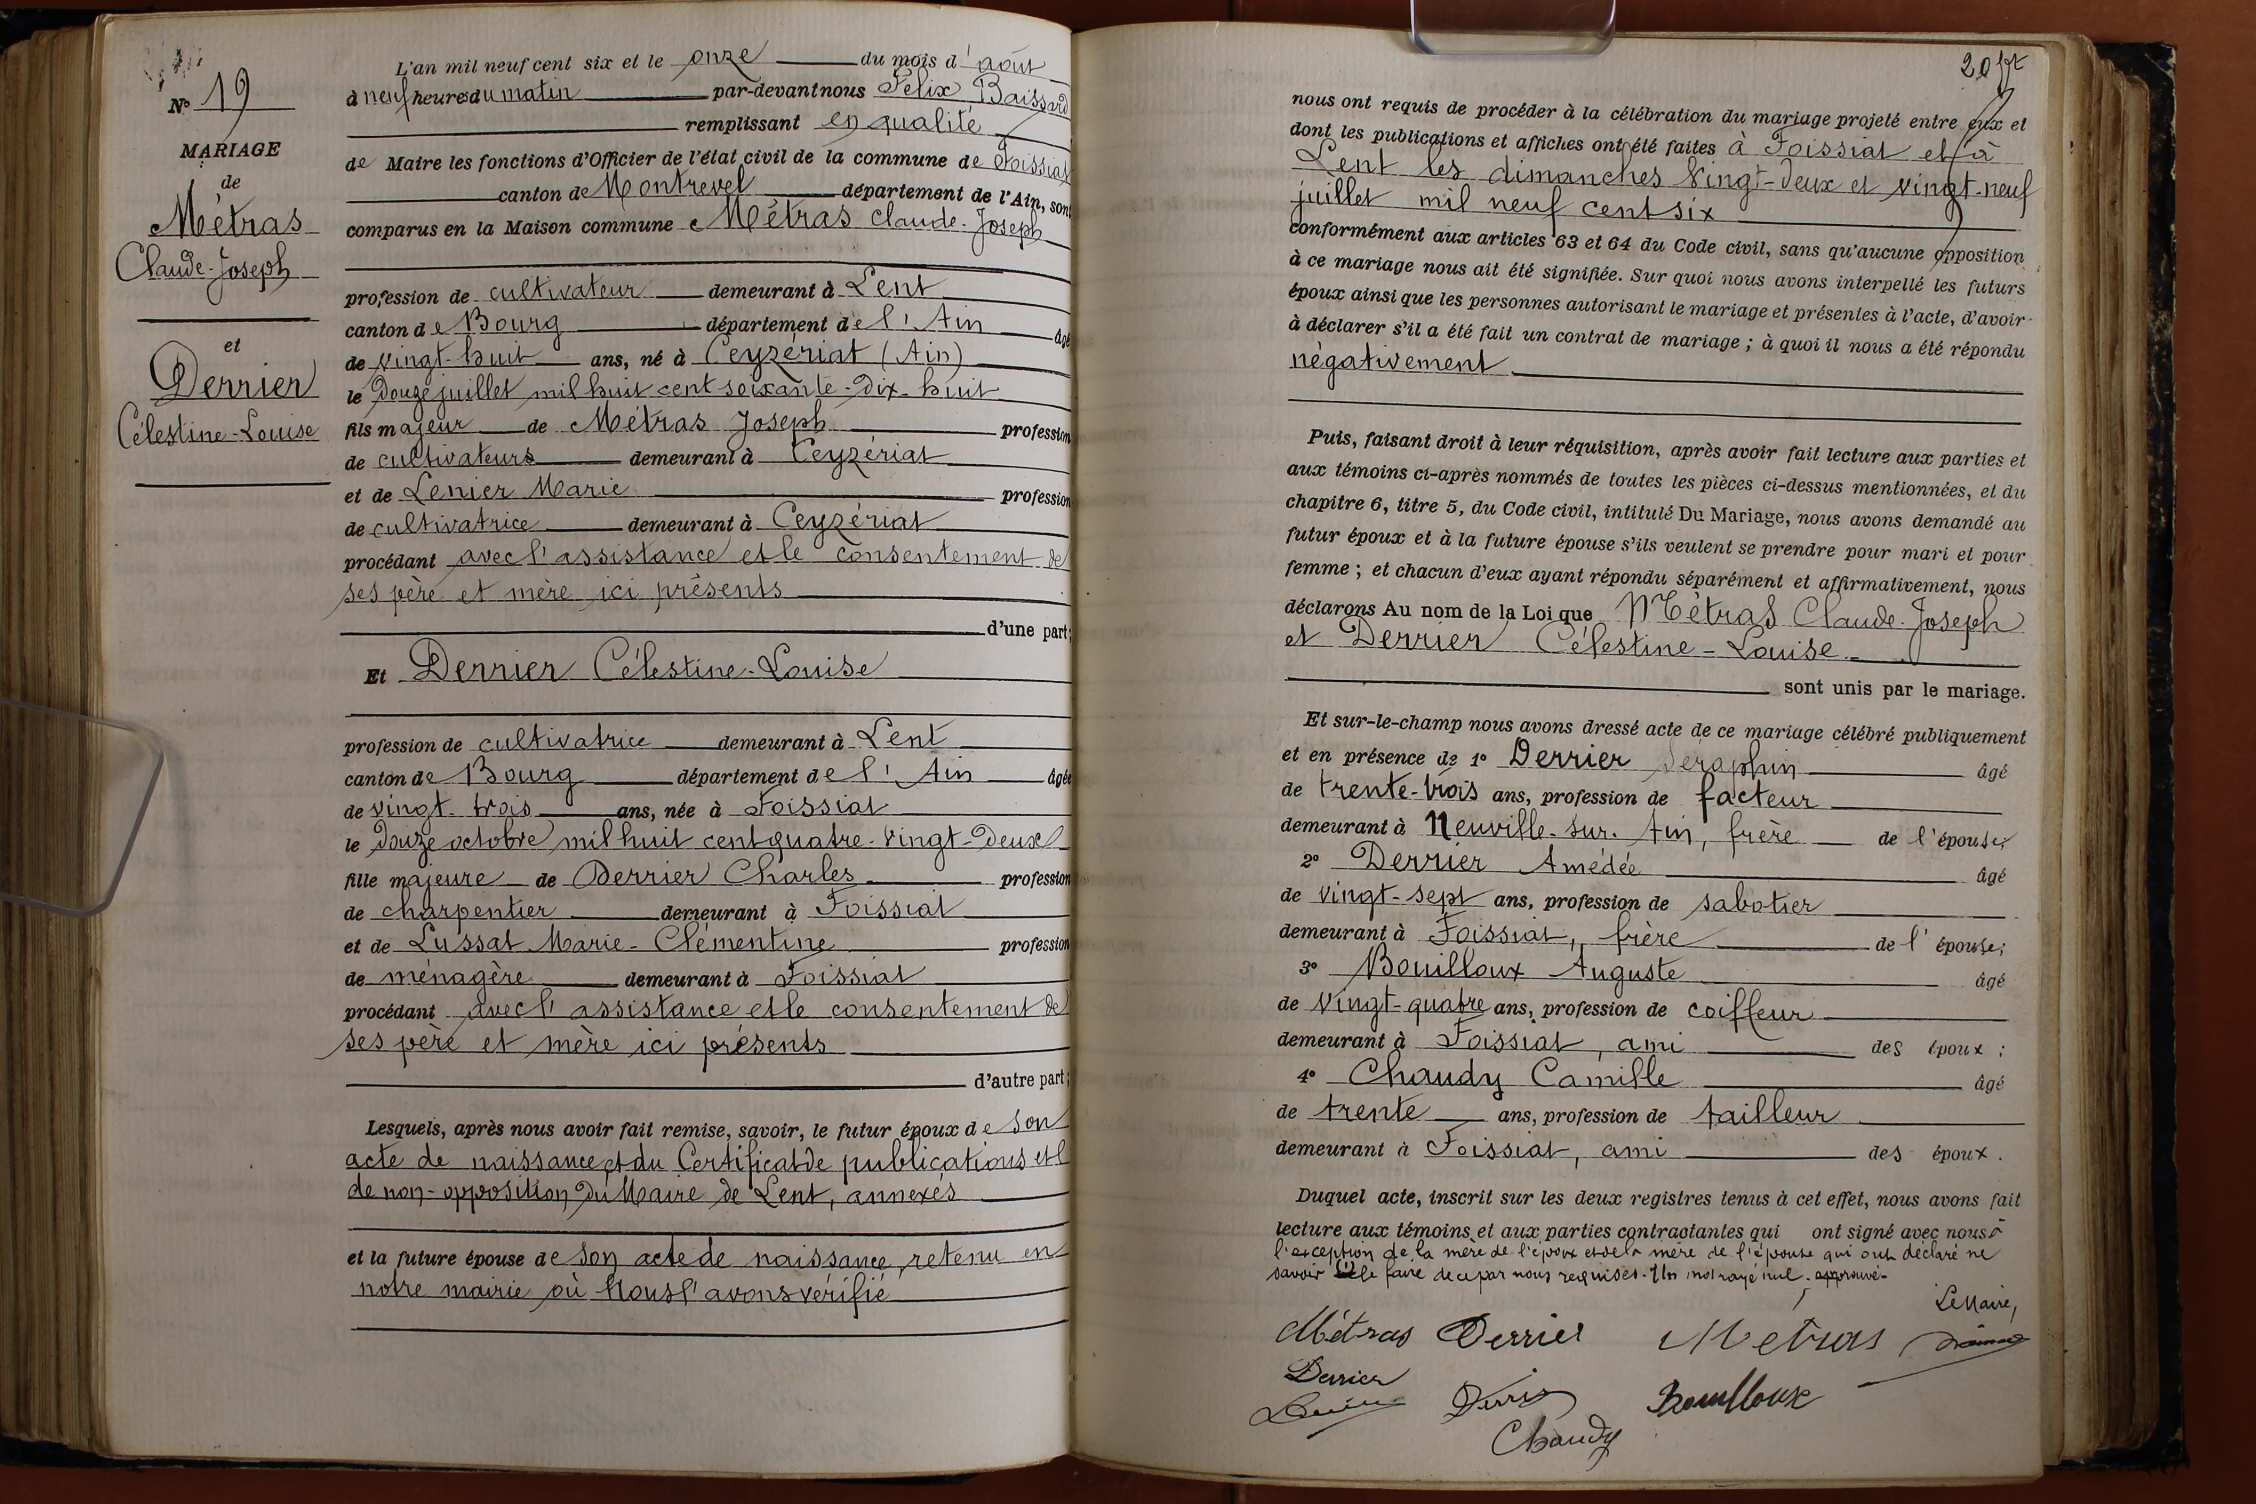 N° 19
MARIAGE
de
Métras
Claude-Joseph
et
Derrier
Célestine-Louise
L'an mil neuf cent six et le onze du mois d'août
à neuf heures du matin par-devant nous Félix Baissard
remplissant en qualité
de Maire les fonctions d'Officier de l'état civil de la commune de Foissiat
canton de Montrevel département de l'Ain, sont
comparus en la Maison commune Métras Claude-Joseph
profession de cultivateur demeurant à Lent
canton de Bourg département de l'Ain âgé
de vingt-huit ans, né à Ceyzériat (Ain)
le douze juillet mil huit cent soixante-dix-huit
fils majeur de Métras Joseph profession
de cultivateurs demeurant à Ceyzériat
et de Lenier Marie profession
de cultivatrice demeurant à Ceyzériat
procédant avec l'assistance et le consentement de
ses père et mère ici présents
d'une part;
Et Derrier Célestine-Louise
profession de cultivatrice demeurant à Lent
canton de Bourg département de l'Ain âgée
de vingt-trois ans, née à Foissiat
le douze octobre mil huit cent quatre-vingt-deux
fille majeure de Derrier Charles profession
de charpentier demeurant à Foissiat
et de Lussat Marie-Clémentine profession
de ménagère demeurant à Foissiat
procédant avec l'assistance et le consentement de
ses père et mère ici présents
d'autre part;
Lesquels, après nous avoir fait remise, savoir, le futur époux de son
acte de naissance et du Certificat de publications et
de non-opposition du Maire de Lent, annexés
et la future épouse de son acte de naissance, retenu en
notre mairie où nous l'avons vérifié
20
nous ont requis de procéder à la célébration du mariage projeté entre eux et
dont les publications et affiches ont été faites à Foissiat et à
Lent les dimanches vingt-deux et vingt-neuf
juillet mil neuf cent six
conformément aux articles 63 et 64 du Code civil, sans qu'aucune opposition
à ce mariage nous ait été signifiée. Sur quoi nous avons interpellé les futurs
époux ainsi que les personnes autorisant le mariage et présentes à l'acte, d'avoir
à déclarer s'il a été fait un contrat de mariage; à quoi il nous a été répondu
négativement
Puis, faisant droit à leur réquisition, après avoir fait lecture aux parties et
aux témoins ci-après nommés de toutes les pièces ci-dessus mentionnées, et du
chapitre 6, titre 5, du Code civil, intitulé Du Mariage, nous avons demandé au
futur époux et à la future épouse s'ils veulent se prendre pour mari et pour
femme; et chacun d'eux ayant répondu séparément et affirmativement, nous
déclarons Au nom de la Loi que Métras Claude-Joseph
et Derrier Célestine-Louise
sont unis par le mariage.
Et sur-le-champ nous avons dressé acte de ce mariage célébré publiquement
et en présence de 1° Derrier Séraphin âgé
de trente-trois ans, profession de facteur
demeurant à Neuville-sur-Ain, frère de l'épouse;
2° Derrier Amédée âgé
de vingt-sept ans, profession de sabotier
demeurant à Foissiat, frère de l'épouse;
3° Bouilloux Auguste âgé
de vingt-quatre ans, profession de coiffeur
demeurant à Foissiat, ami des époux;
4° Chaudy Camille âgé
de trente ans, profession de tailleur
demeurant à Foissiat, ami des époux.
Duquel acte, inscrit sur les deux registres tenus à cet effet, nous avons fait
lecture aux témoins et aux parties contractantes qui ont signé avec nous à
l'exception de la mère de l'époux et de la mère de l'épouse qui ont déclaré ne
savoir le faire de ce par nous requises. Un mot rayé nul. approuvé.
Le Maire,
Métras Derrier Métras
Derrier
Bouilloux
Chaudy